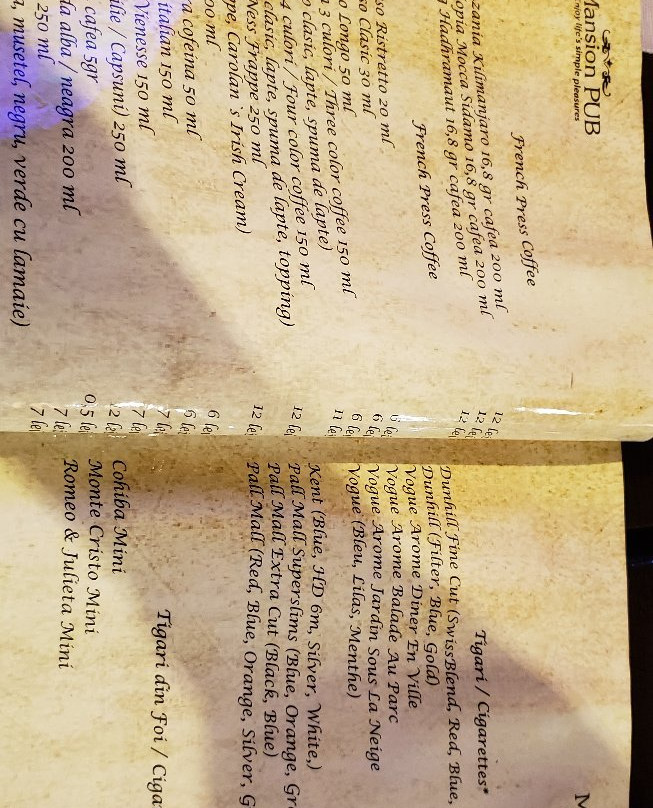 Mansion PUB
enjoy life's simple pleasures
French Press Coffee
zania Kilimanjaro 16,8 gr cafea 200 ml 12 lei
opia Mocca Sidamo 16,8 gr cafea 200 ml 12 lei
Hadhramaut 16,8 gr cafea 200 ml 12 lei
French Press Coffee
so Ristretto 20 ml 6 lei
so Clasic 30 ml 6 lei
o Longo 50 ml 6 lei
3 culori / Three color coffee 150 ml 11 lei
clasic, lapte, spuma de lapte)
4 culori / Four color coffee 150 ml 12 lei
clasic, lapte, spuma de lapte, topping)
Ness Frappe 250 ml 12 lei
pe, Carolan's Irish Cream)
00 ml 6 lei
a cofeina 50 ml 6 lei
italian 150 ml 7 lei
Vienesse 150 ml 7 lei
ilie / Capsuni) 250 ml 12 lei
cafea 5gr 0,5 lei
da alba / neagra 200 ml 7 lei
250 ml 7 lei
, musetel, negru, verde cu lamaie)
M
Tigari / Cigarettes*
Dunhill Fine Cut (SwissBlend, Red, Blue,
Dunhill (Filter, Blue, Gold)
Vogue Arome Diner En Ville
Vogue Arome Balade Au Parc
Vogue Arome Jardin Sous La Neige
Vogue (Bleu, Lilas, Menthe)
Kent (Blue, HD 6m, Silver, White,)
Pall Mall Superslims (Blue, Orange, Gr
Pall Mall Extra Cut (Black, Blue)
Pall Mall (Red, Blue, Orange, Silver, G
Tigari din Foi / Ciga
Cohiba Mini
Monte Cristo Mini
Romeo & Julieta Mini